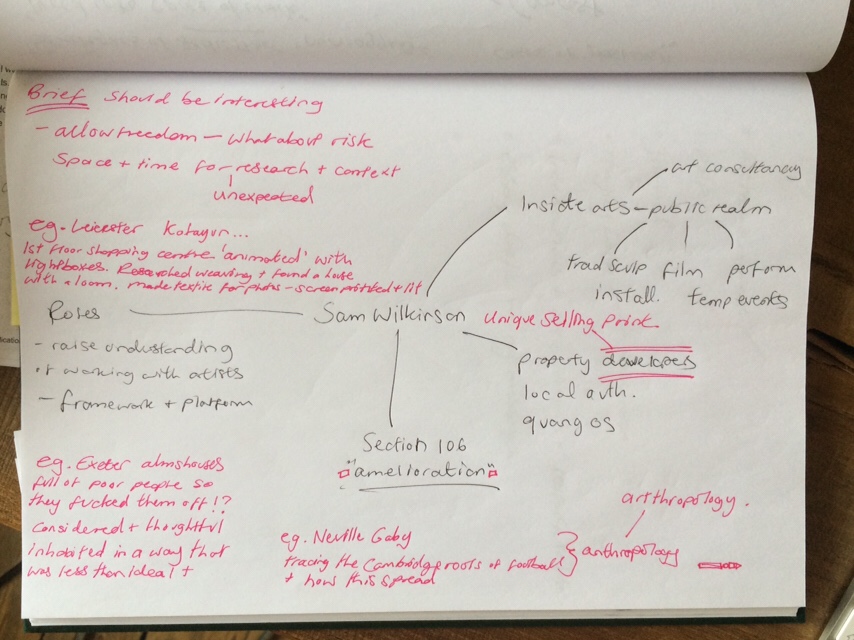 Brief should be interesting
- allow freedom – what about risk
Space + time for research + context
unexpected
eg. Leicester Kotayun...
1st floor shopping centre 'animated' with
lightboxes. Researched weaving + found a house
with a loom. made textile for photos – screen printed + lit
Roles
- raise understanding
of working with artists
- framework + platform
Sam Wilkinson
Inside arts – public realm
art consultancy
trad sculp film perform
install. temp events
Unique Selling Point.
property developers
local auth.
quangos
Section 106
"amelioration"
eg. Exeter almshouses
full of poor people so
they fucked them off!?
Considered + thoughtful
inhabited in a way that
was less than ideal +
eg. Neville Gaby
tracing the Cambridge roots of football
+ how this spread
anthropology
artthropology.